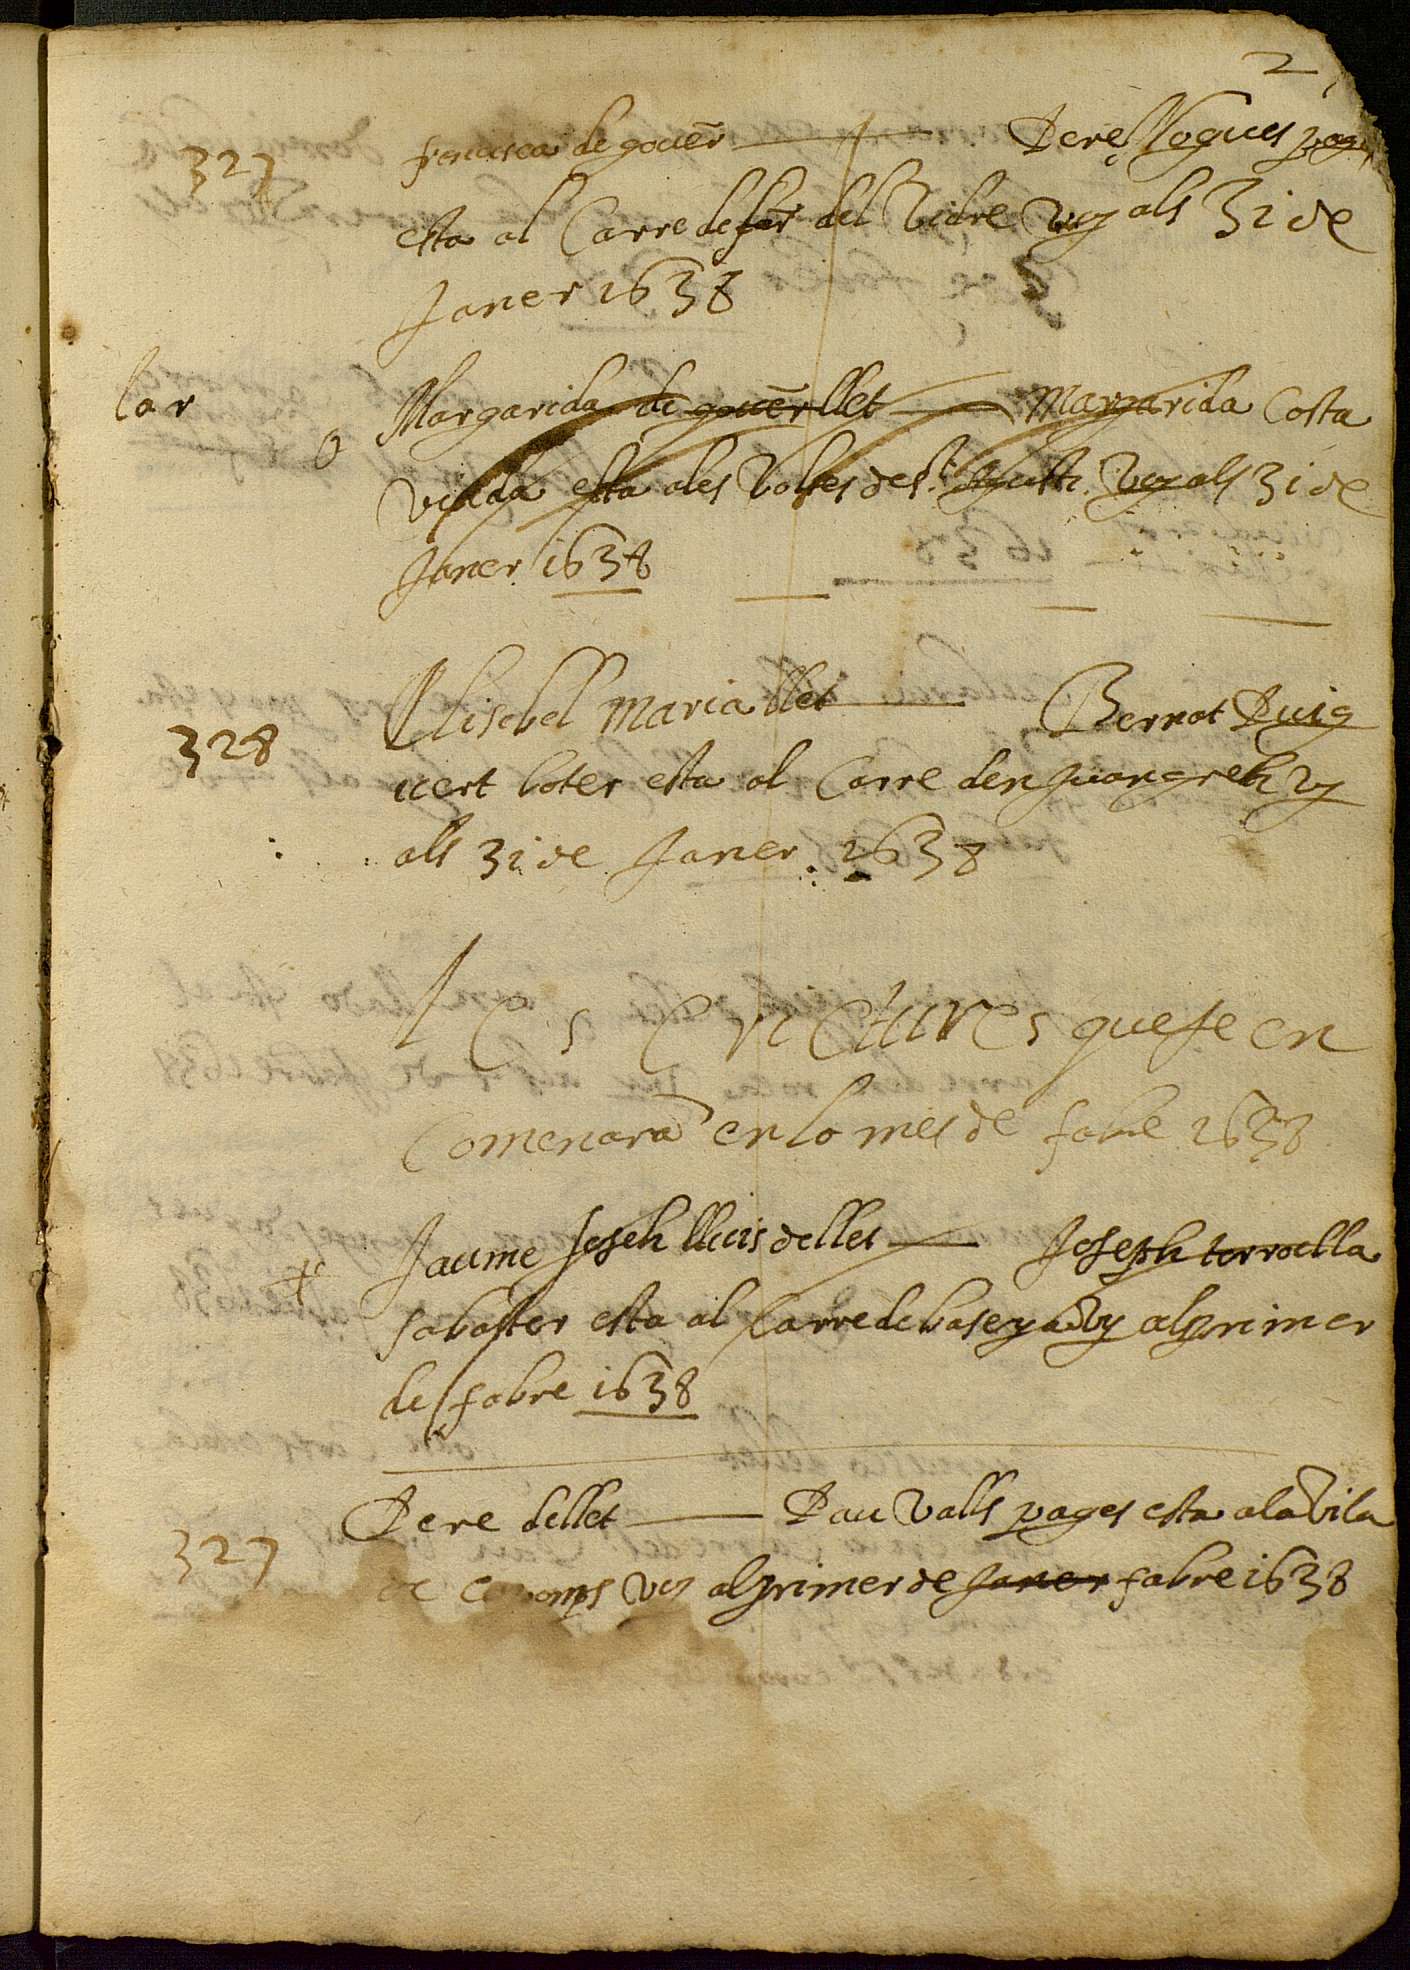 2
327 francisca de gouer̄ Pere Nogues pag
esta al Carre de st del Vidre vuy als 31 de
Janer 1638
lar
o Margarida de gouer̄ llet Margarida Costa
Viuda esta ales Voltes de st Agusti vuy als 31 de
Janer 1638
328 Elisebel Maria llet Bernat Puig
uert boter esta al Carre den Juan grech vy
als 31 de Janer 1638
Les Criatures que se en
Comenarā en lo mes de fabre 1638
Jaume Joseph lluis de llet Joseph torroella
Sabater esta al Carre de baseya vy al primer
de fabre 1638
327 Pere de llet Pau Valls pages esta ala Vila
de vuy al primer de Janer fabre 1638